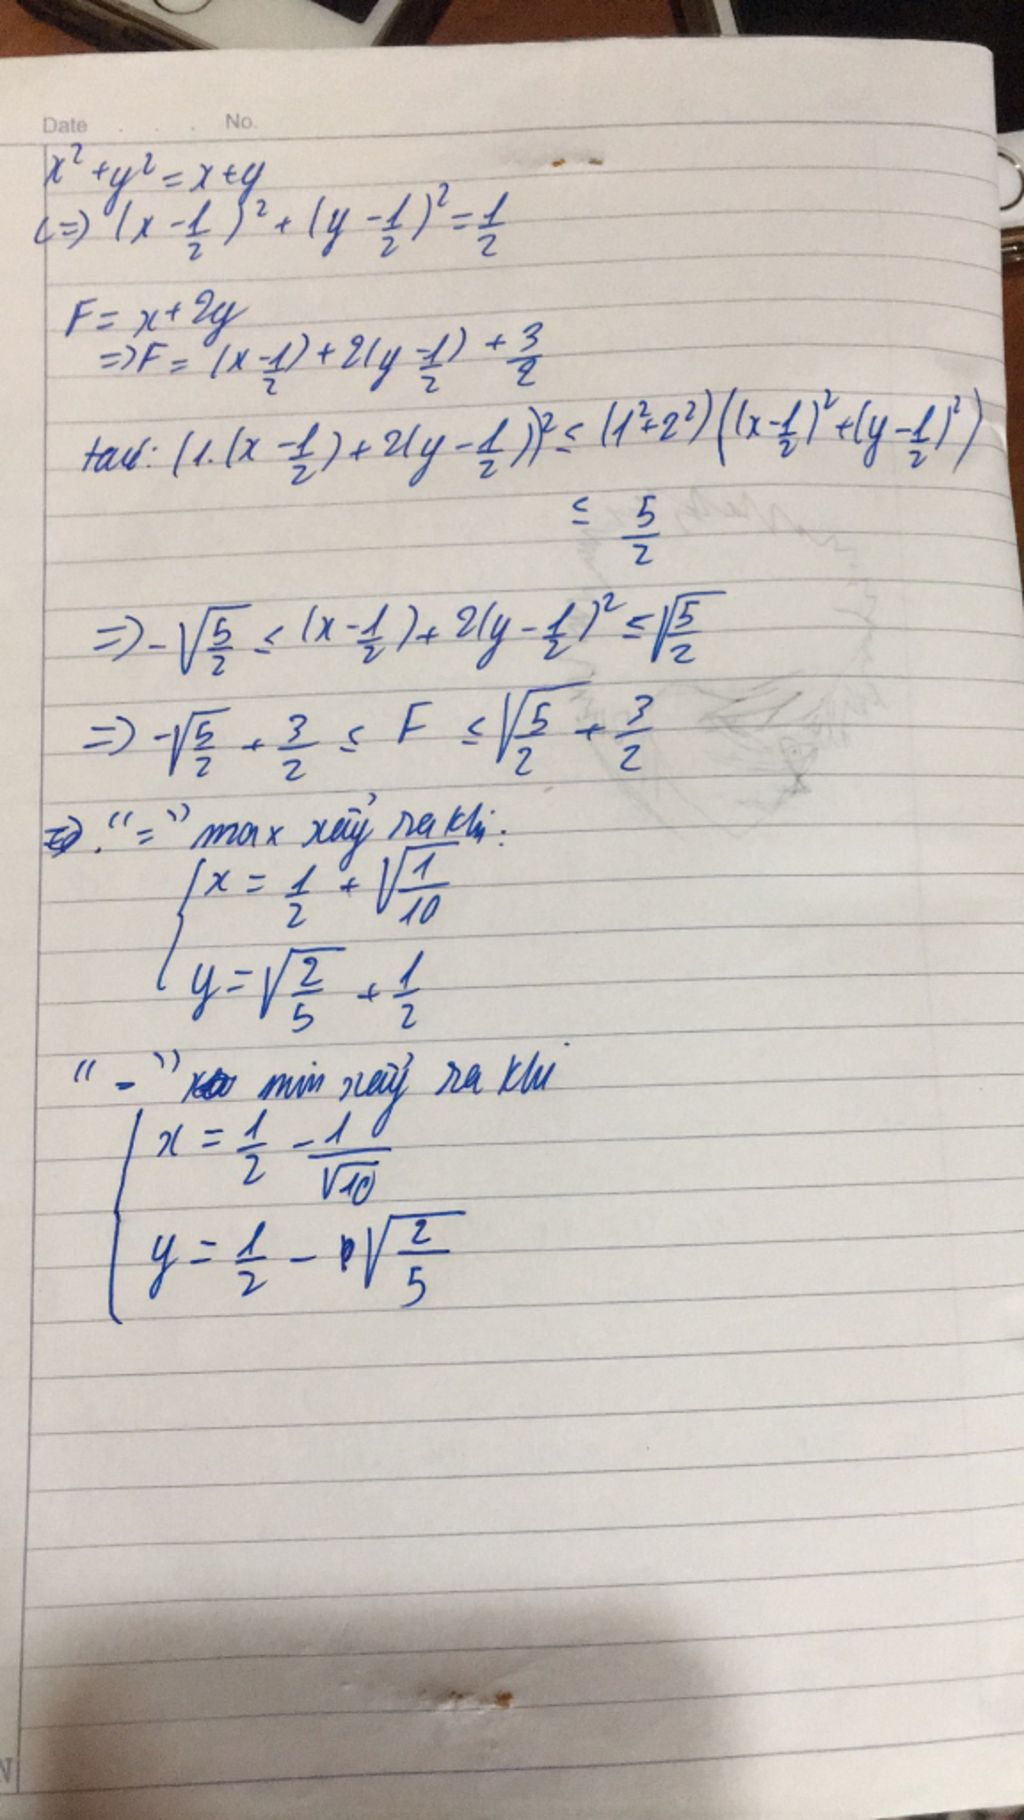 Date . . . No.
x² + y² = x + y
(=) (x - 1/2)² + (y - 1/2)² = 1/2
F = x + 2y
=> F = (x - 1/2) + 2(y - 1/2) + 3/2
(1.(x - 1/2) + 2(y - 1/2))² ≤ (1² + 2²)((x - 1/2)² + (y - 1/2)²)
≤ 5/2
=> -√(5/2) ≤ (x - 1/2) + 2(y - 1/2)² ≤ √(5/2)
=> -√(5/2) + 3/2 ≤ F ≤ √(5/2) + 3/2
=> . "=" max xảy ra khi:
{ x = 1/2 + √(1/10)
y = √(2/5) + 1/2
"=" min xảy ra khi
{ x = 1/2 - 1/√10
y = 1/2 - √(2/5)